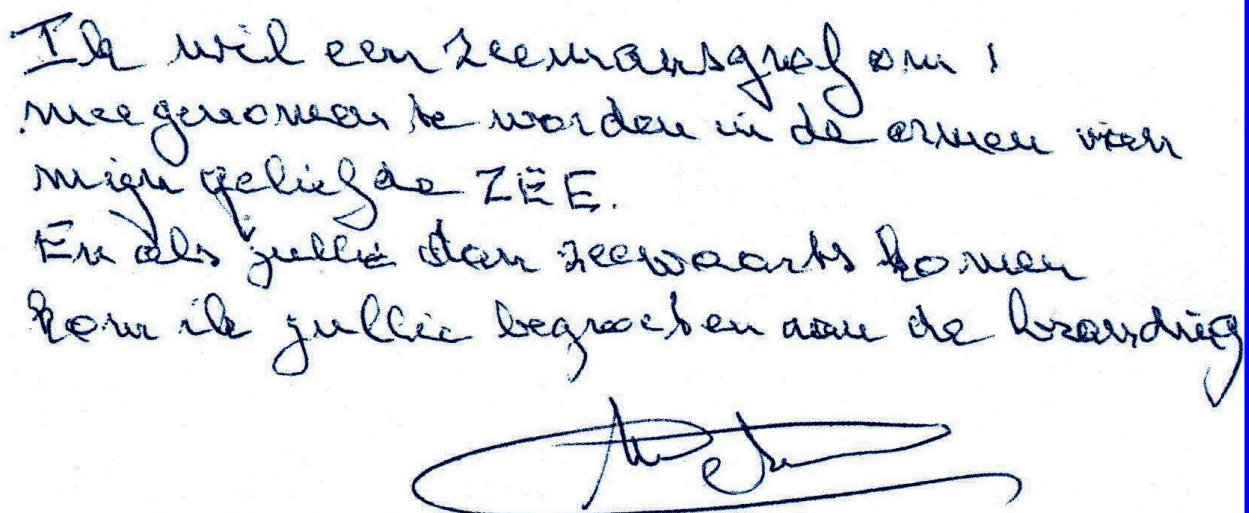 Ik wil een zeemansgraf om
meegenomen te worden in de armen van
mijn geliefde ZEE.
En als jullie dan zeewaarts komen
kom ik jullie begroeten aan de branding